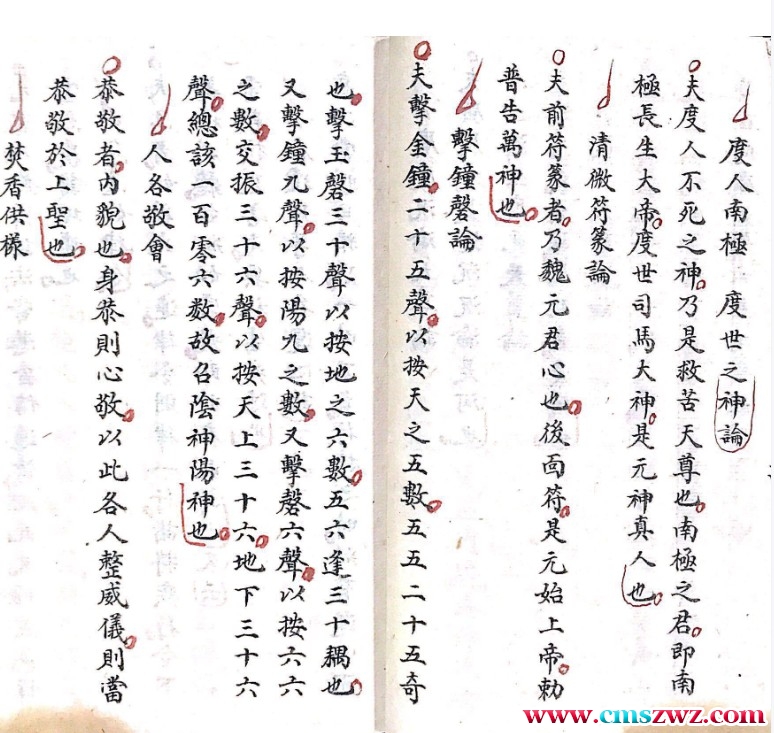 度人南極 度世之神論
夫度人不死之神乃是救苦天尊也南極之君即南
極長生大帝度世司馬大神是元神真人也
清微符篆論
夫前符篆者乃魏元君心也後面符是元始上帝勅
普告萬神也
擊鐘磬論
夫擊金鐘二十五聲以按天之五數五五二十五奇
也擊玉磬三十聲以按地之六數五六逢三十耦也
又擊鐘九聲以按陽九之數又擊磬六聲以按六六
之數交振三十六聲以按天上三十六地下三十六
聲總該一百零六数故召陰神陽神也
人各敬會
恭敬者內貌也身恭則心敬以此各人整威儀則當
恭敬於上聖也
焚香供樣
www.cmszwz.com